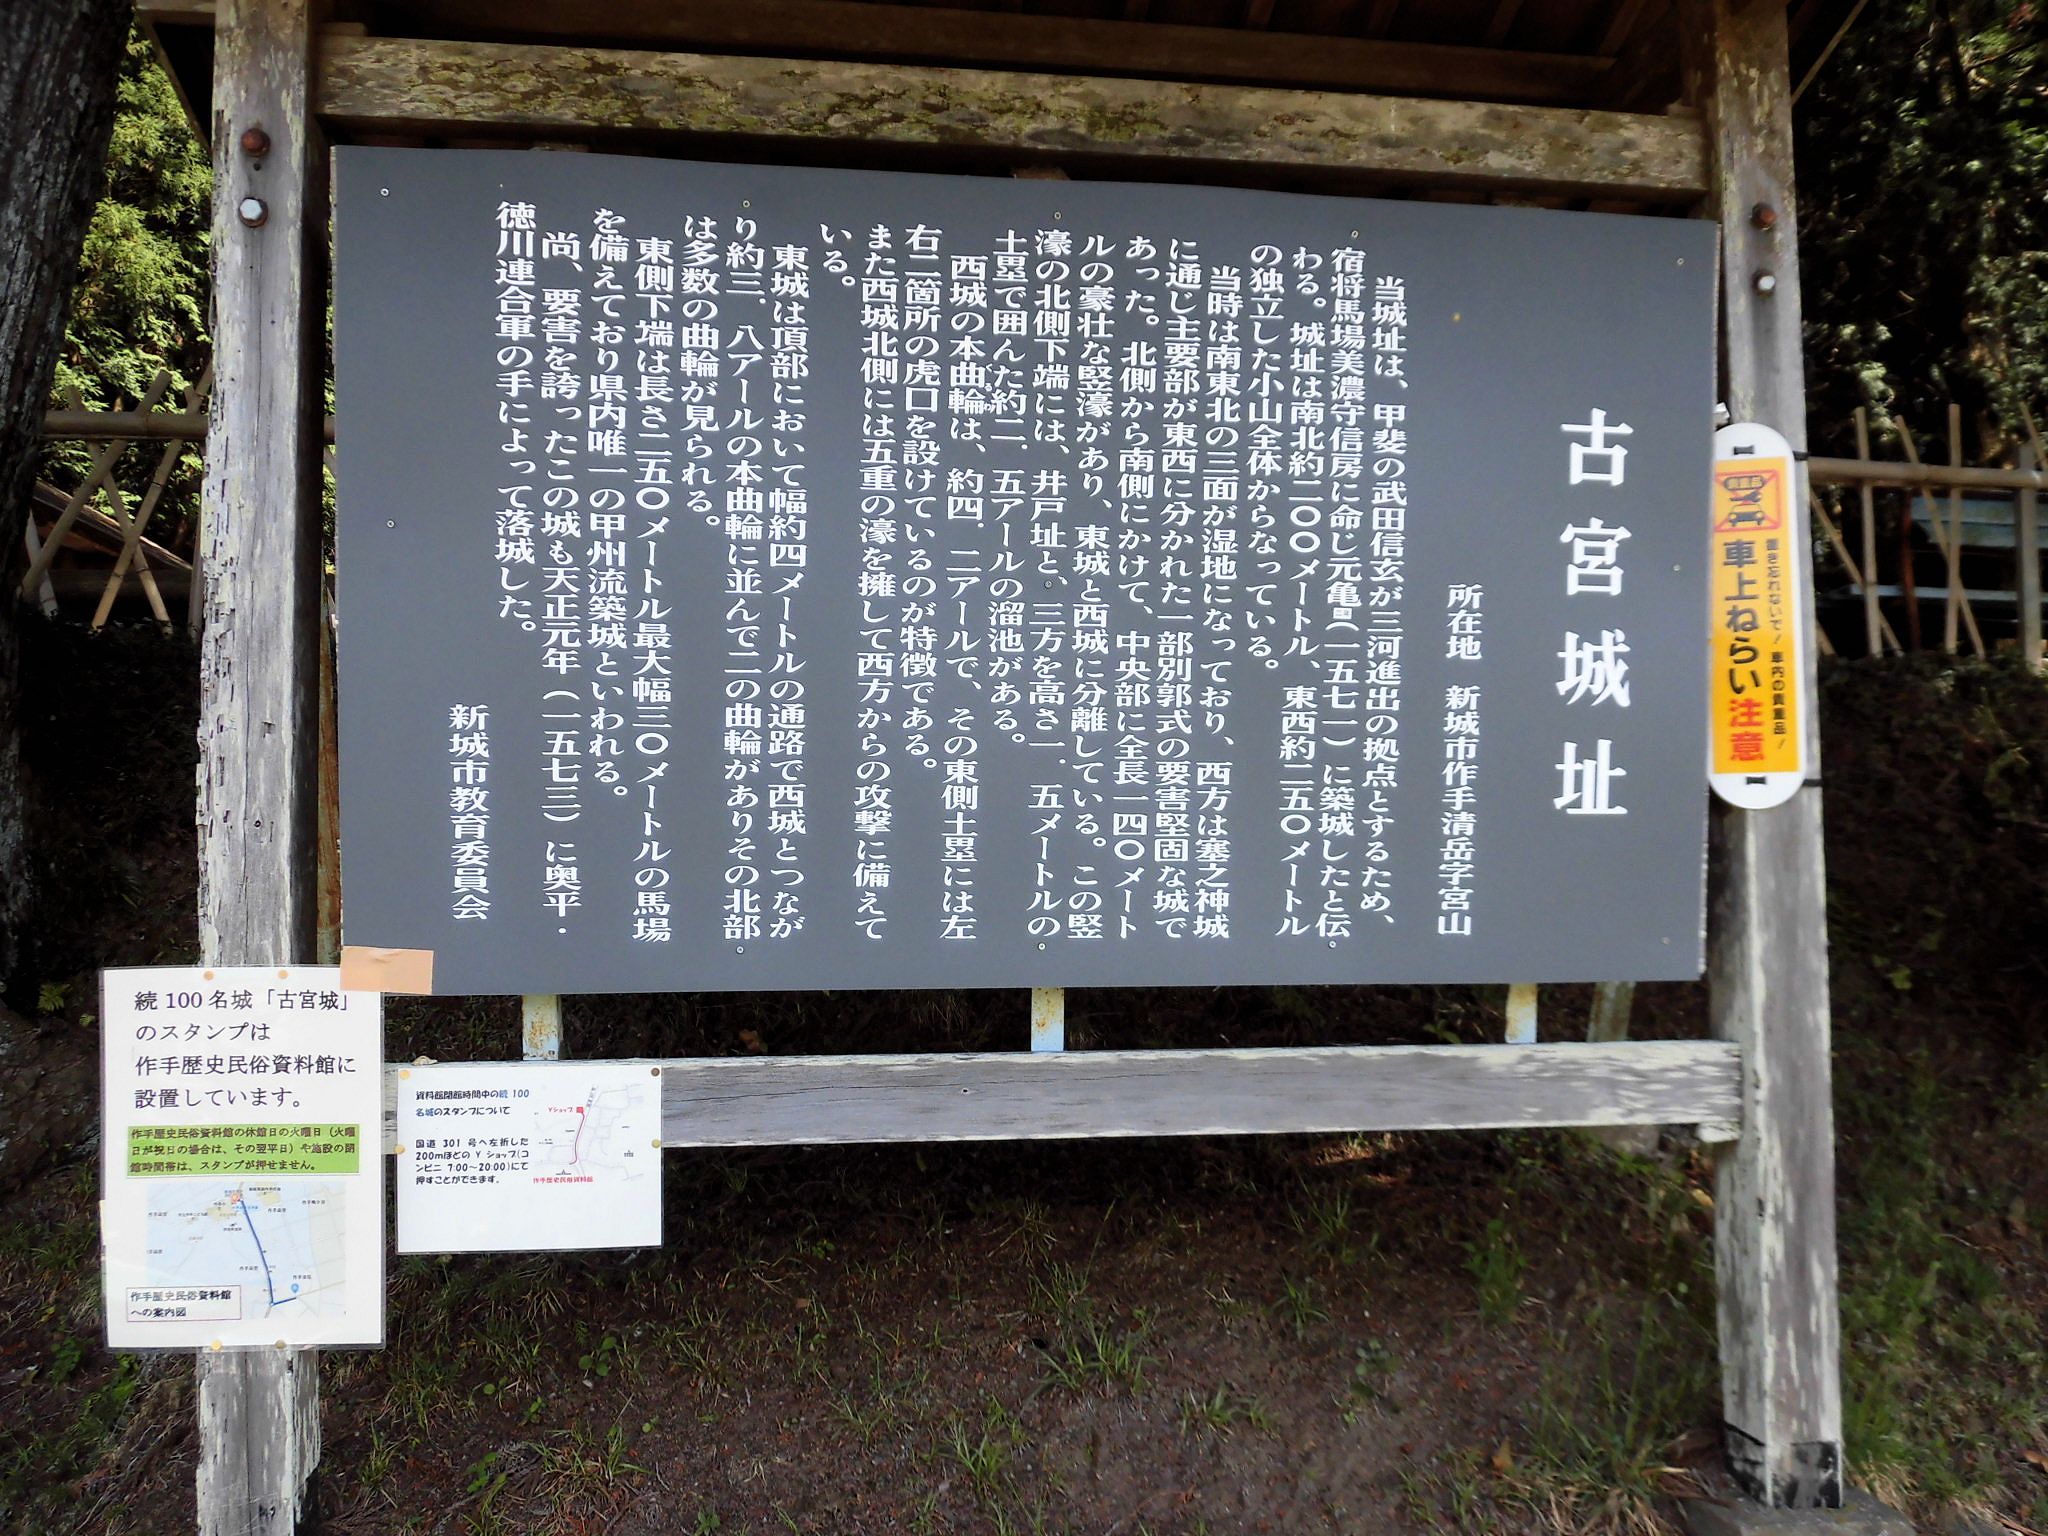 古宮城址
所在地 新城市作手清岳字宮山
当城址は、甲斐の武田信玄が三河進出の拠点とするため、
宿将馬場美濃守信房に命じ元亀二年(一五七一)に築城したと伝
わる。城址は南北約二〇〇メートル、東西約二五〇メートル
の独立した小山全体からなっている。
当時は南東北の三面が湿地になっており、西方は塞之神城
に通じ主要部が東西に分かれた一部別郭式の要害堅固な城で
あった。北側から南側にかけて、中央部に全長一四〇メート
ルの豪壮な竪濠があり、東城と西城に分離している。この竪
濠の北側下端には、井戸址と、三方を高さ一.五メートルの
土塁で囲んた約二.五アールの溜池がある。
西城の本曲輪は、約四.二アールで、その東側土塁には左
くるわ
右二箇所の虎口を設けているのが特徴である。
また西城北側には五重の濠を擁して西方からの攻撃に備えて
いる。
東城は頂部において幅約四メートルの通路で西城とつなが
り約三.八アールの本曲輪に並んで二の曲輪がありその北部
は多数の曲輪が見られる。
東側下端は長さ二五〇メートル最大幅三〇メートルの馬場
を備えており県内唯一の甲州流築城といわれる。
尚、要害を誇ったこの城も天正元年(一五七三)に奥平・
徳川連合軍の手によって落城した。
新城市教育委員会
置き忘れないで!車内の貴重品!
車上ねらい注意
続100名城「古宮城」
のスタンプは
作手歴史民俗資料館に
設置しています。
作手歴史民俗資料館の休館日の火曜日(火曜
日が祝日の場合は、その翌平日)や施設の閉
館時間帯は、スタンプが押せません。
作手歴史民俗資料館
への案内図
資料館閉館時間中の続100
名城のスタンプについて
国道301号へ左折した
200mほどのYショップ(コ
ンビニ 7:00~20:00)にて
押すことができます。
Yショップ
作手歴史民俗資料館